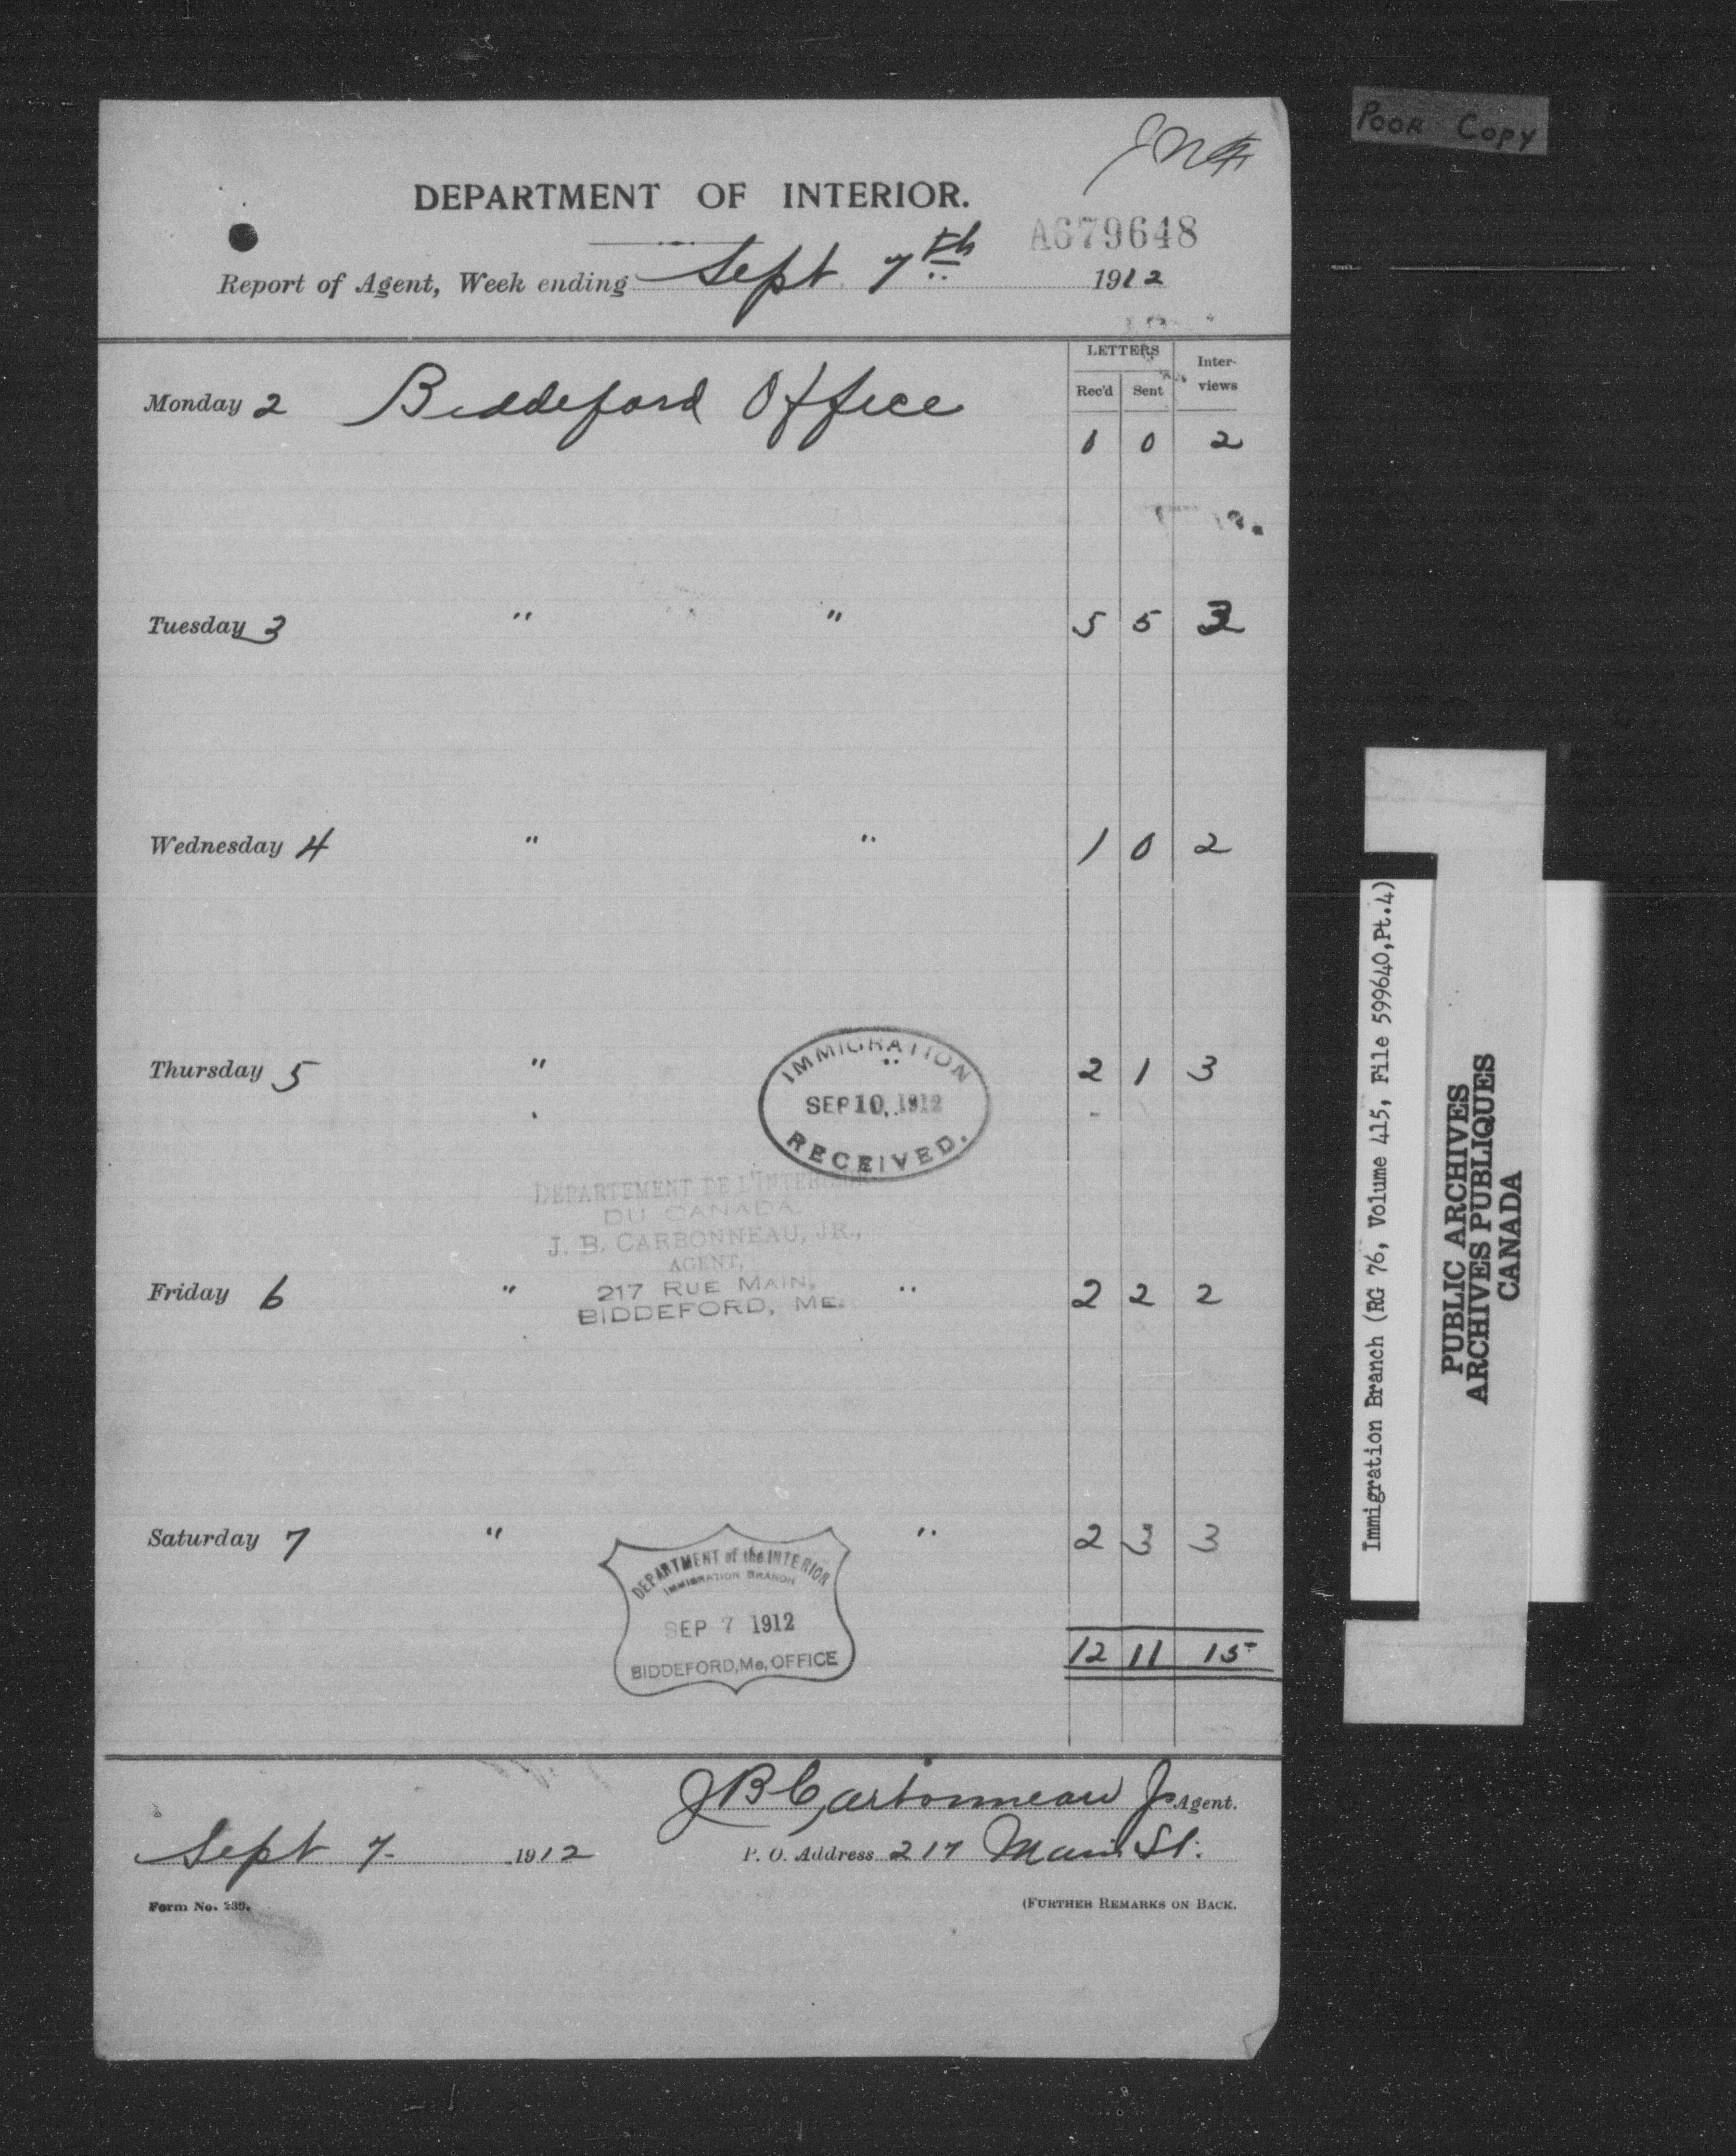 POOR COPY
DEPARTMENT OF INTERIOR.
A679648
Report of Agent, Week ending Sept 7th 1912
LETTERS
Rec'd Sent Inter-views
Monday 2 Biddeford Office
0 0 2
Tuesday 3 " " 5 5 3
Wednesday 4 " " 1 0 2
Thursday 5 " " 2 1 3
IMMIGRATION
SEP 10, 1912
RECEIVED.
DEPARTEMENT DE L'INTERIEUR
DU CANADA.
J. B. CARBONNEAU, JR.,
AGENT,
217 RUE MAIN,
BIDDEFORD, ME.
Friday 6 " " 2 2 2
Saturday 7 " " 2 3 3
DEPARTMENT of the INTERIOR
IMMIGRATION BRANCH
SEP 7 1912
BIDDEFORD, Me, OFFICE
12 11 15
J B Carbonneau Jr Agent.
Sept 7 1912 P. O. Address 217 Main St.
Form No. 239. (FURTHER REMARKS ON BACK.
Immigration Branch (RG 76, Volume 415, File 599640, Pt.4)
PUBLIC ARCHIVES
ARCHIVES PUBLIQUES
CANADA